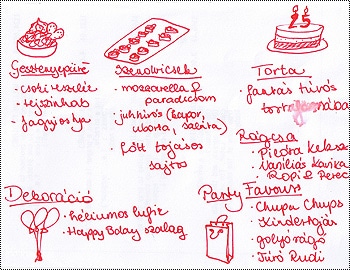 Gesztenyepüré
• csoki reszelék
• tejszínhab
• fagyiostya
Szendvicsek
• mozzarella &
paradicsom
• juhtúrós (kapor,
uborka, saláta)
• főtt tojásos
sajtos
25
Torta
fantás túrós
torta
Rágcsa
• Piedra Keksz
• Vaníliás Karika
• Ropi & Perec
Dekoráció
• héliumos lufik
• Happy Bday szalag
Party Favours
• Chupa Chups
• Kindertojás
• golyó rágó
• Túró Rudi